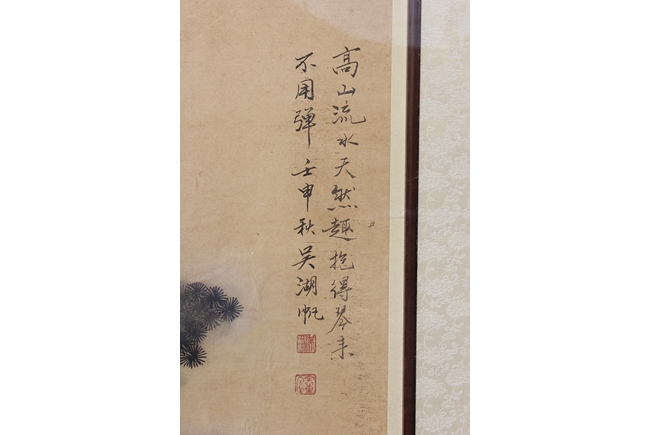 高山流水天然趣抱得琴来
不用弹 壬申秋吴湖帆